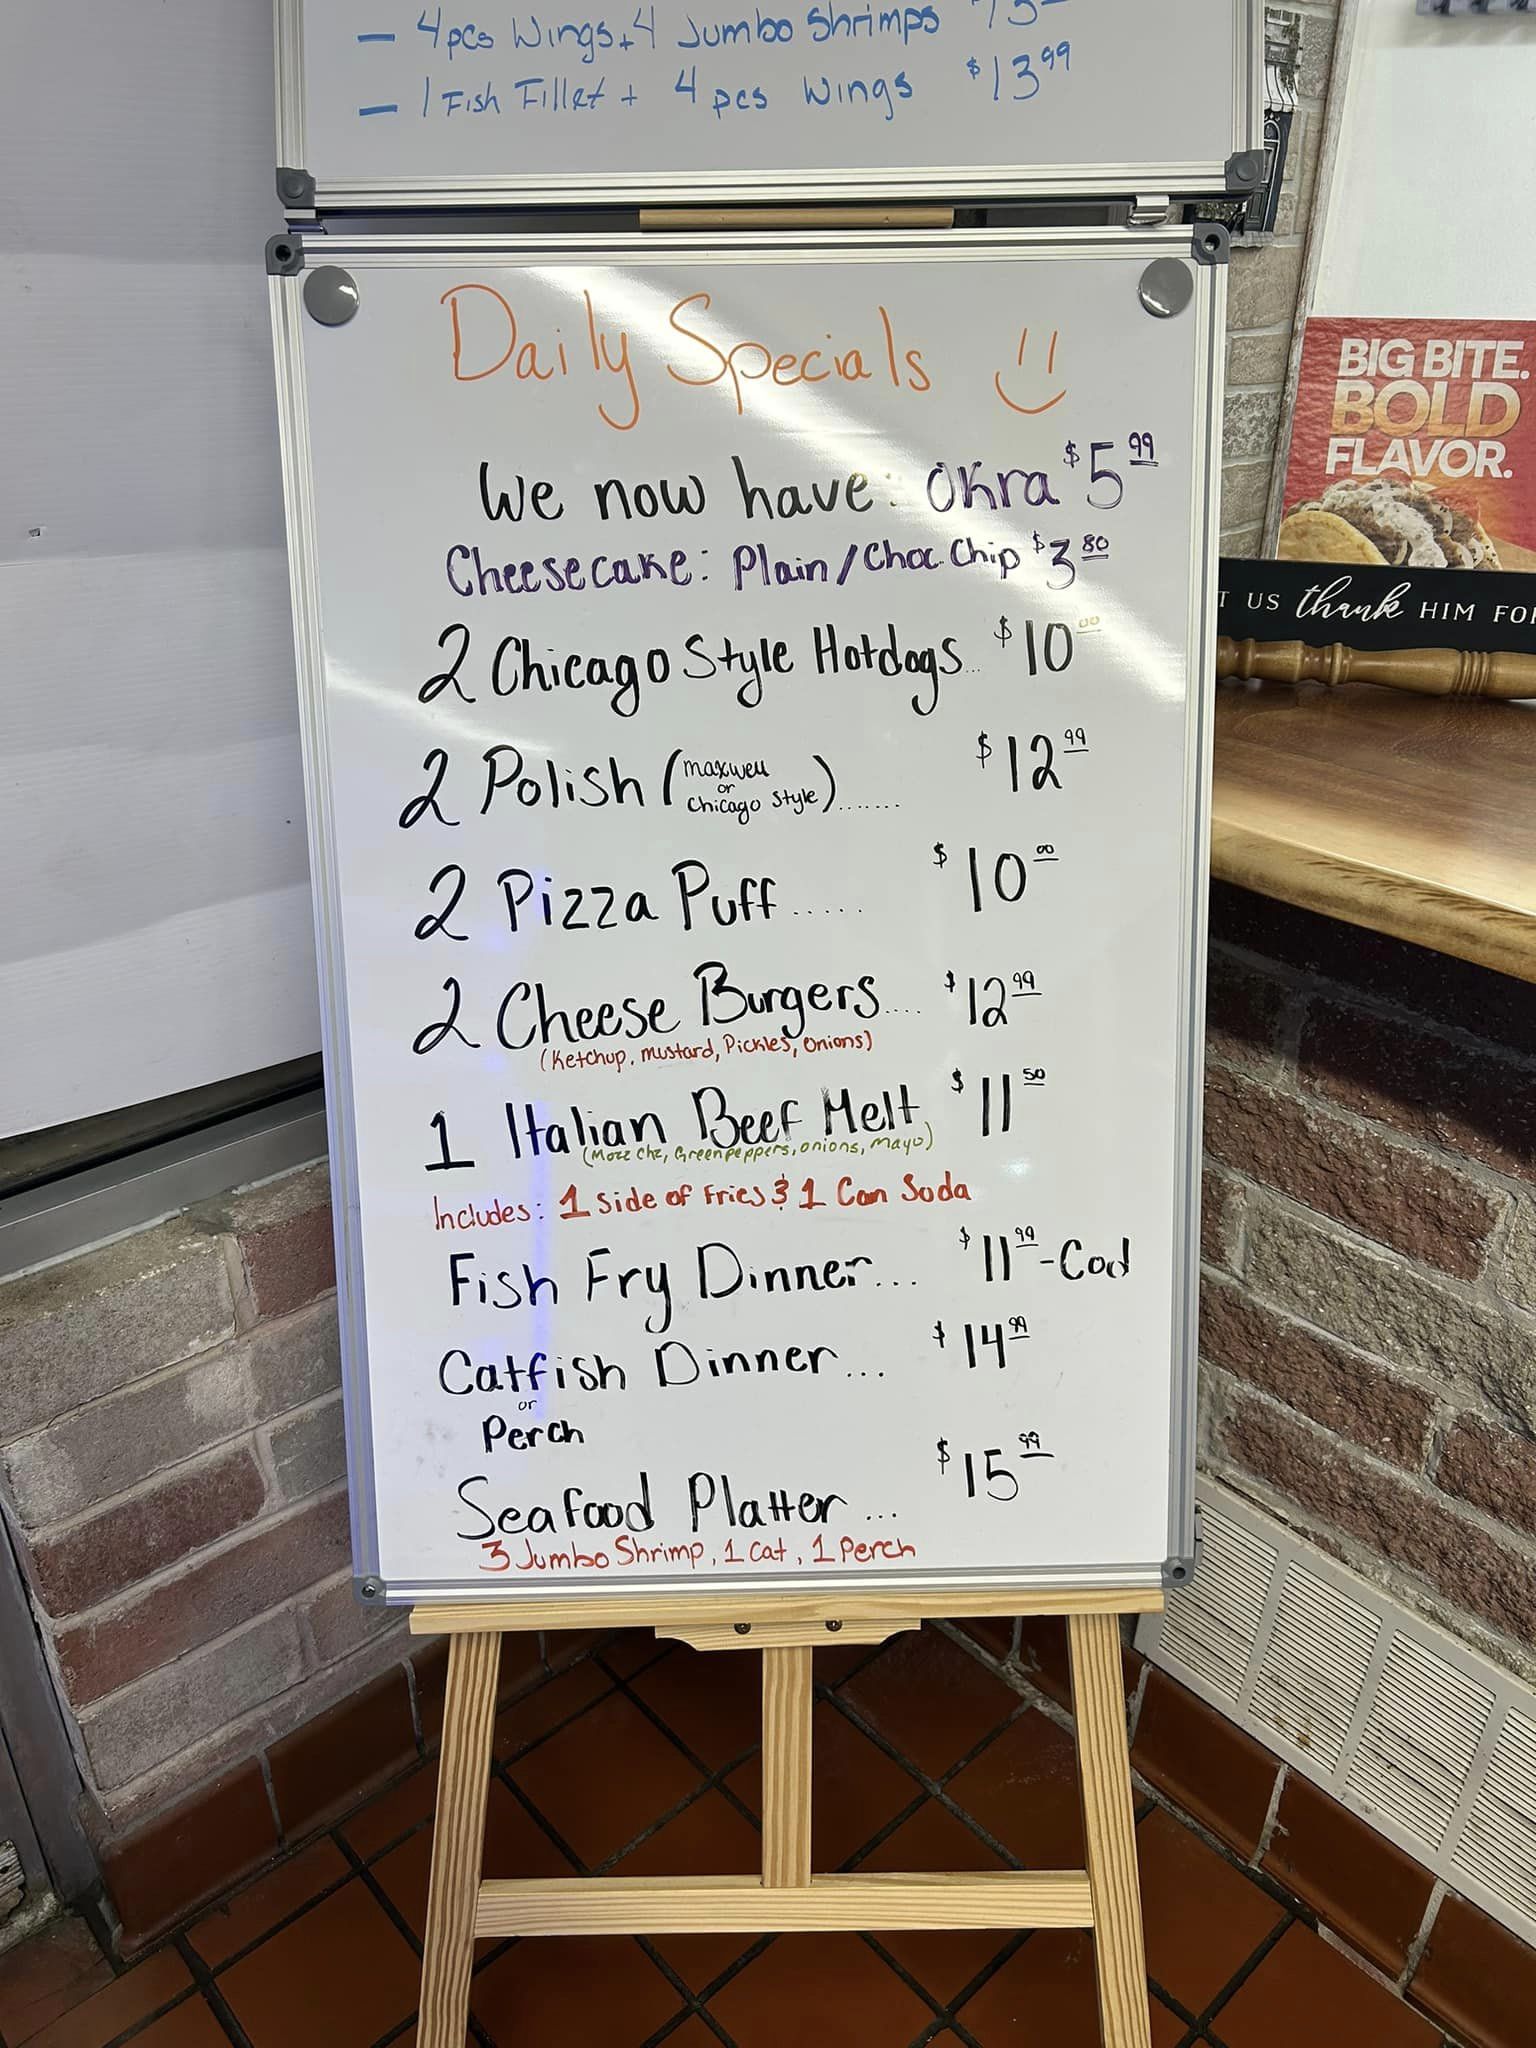 - 4pcs Wings + 4 Jumbo Shrimps
- 1 Fish Fillet + 4 pcs Wings $13.99
Daily Specials
We now have: Okra $5.99
Cheesecake: Plain/Choc. Chip $3.80
2 Chicago Style Hotdogs... $10.00
2 Polish (maxwell or Chicago Style)....... $12.99
2 Pizza Puff..... $10.00
2 Cheese Burgers.... $12.99
(Ketchup, mustard, Pickles, onions)
1 Italian Beef Melt $11.50
(Mozz chz, Greenpeppers, onions, mayo)
Includes: 1 side of Fries & 1 Can Soda
Fish Fry Dinner... $11.99 - Cod
Catfish Dinner... $14.99
or
Perch
Seafood Platter... $15.99
3 Jumbo Shrimp, 1 Cat, 1 Perch
BIG BITE.
BOLD
FLAVOR.
US thank HIM FOR